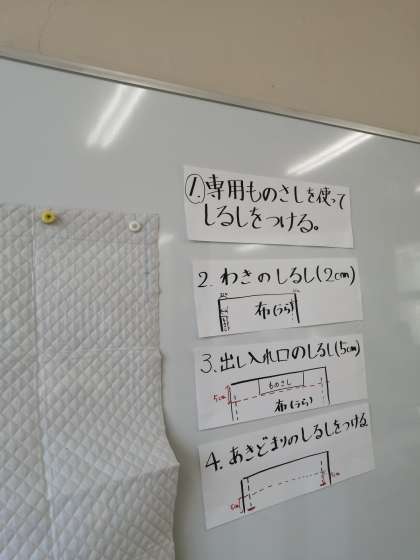 1. 専用ものさしを使って
しるしをつける。
2. わきのしるし(2cm)
布(うら)
3. 出し入れ口のしるし(5cm)
ものさし
5cm
布(うら)
4. あきどまりのしるしをつける